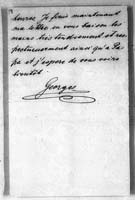 heures. Je finis maintenant
ma lettre en vous baisant les
mains très tendrement et res-
pectueusement ainsi qu'à Pa-
pa et j'espère de vous voir
bientôt.
Georges